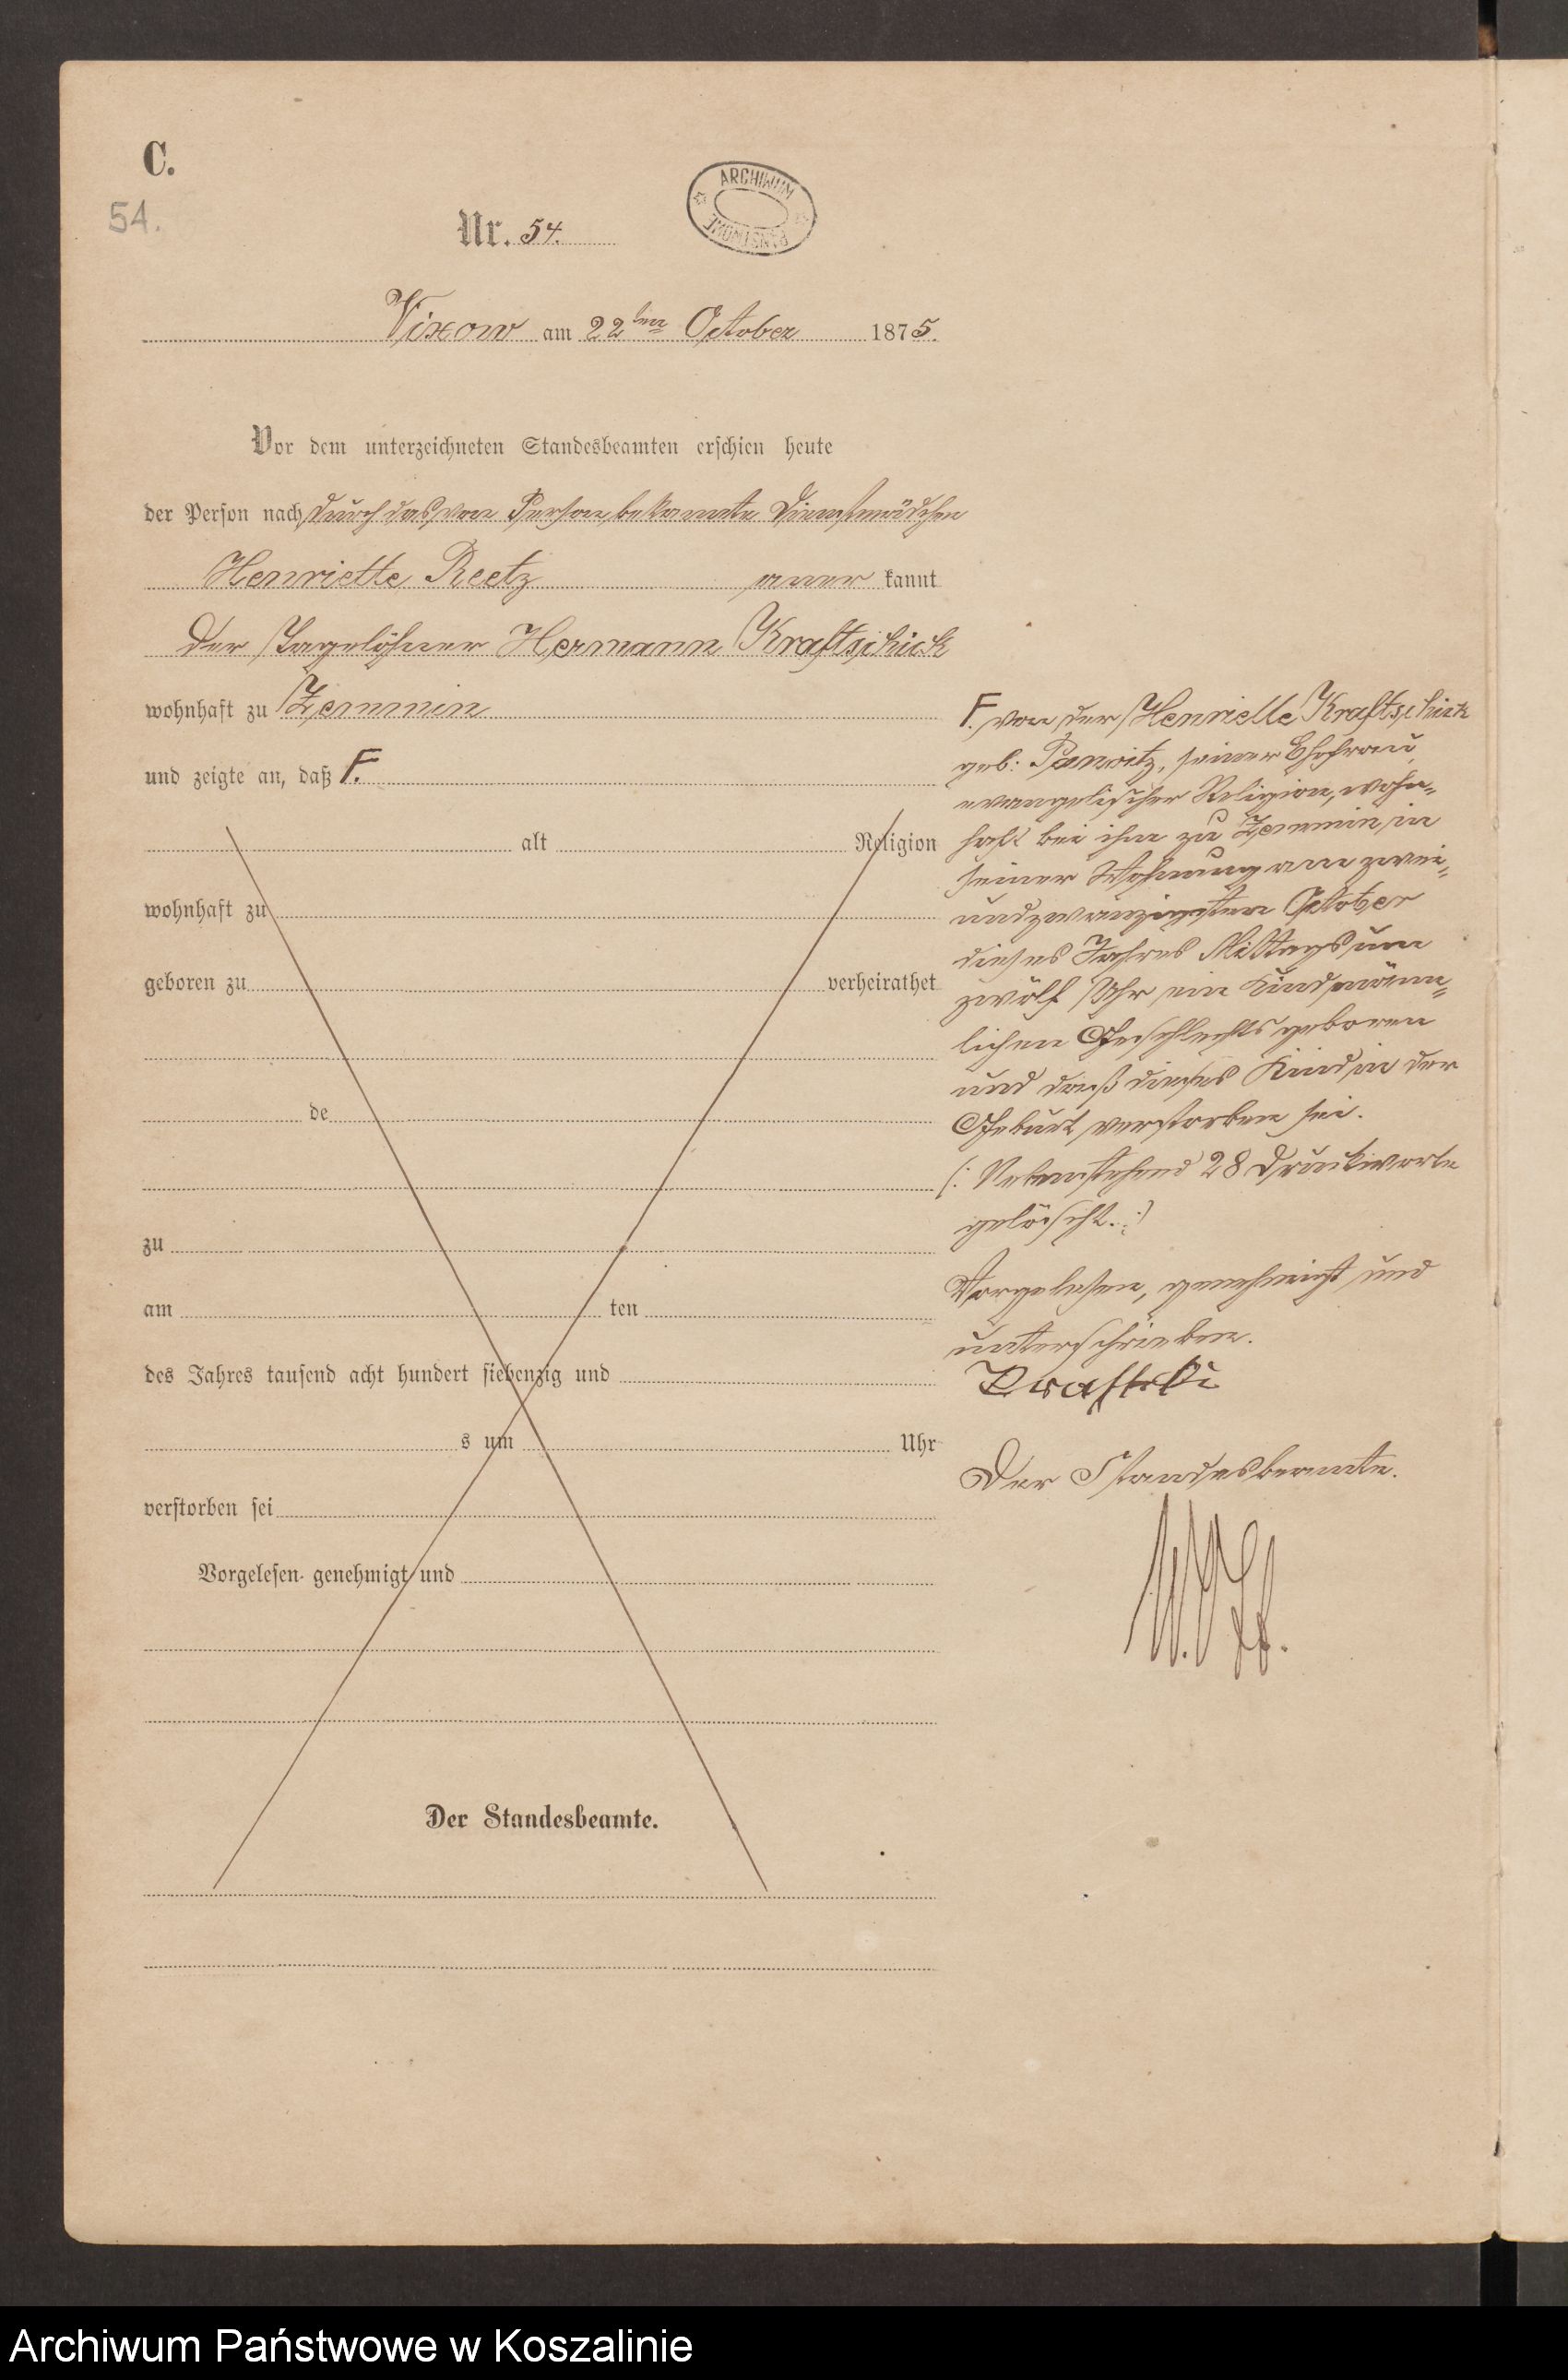 C.
54.
Nr. 54.
ARCHIWUM PAŃSTWOWE
Vixow am 22ten October 1875.
Vor dem unterzeichneten Standesbeamten erschien heute
der Person nach durch das von Person bekannte Dienstmädchen
Henriette Reetz aner kannt
der Tagelöhner Hermann Kraftschick
wohnhaft zu Zemmin
und zeigte an, daß F.
alt Religion
wohnhaft zu
geboren zu verheirathet
de
zu
am ten
des Jahres tausend acht hundert siebenzig und
s um Uhr
verstorben sei
Vorgelesen genehmigt und
Der Standesbeamte.
F. von der Henriette Kraftschick
geb: Panwitz, seiner Ehefrau,
evangelischer Religion, wohn-
haft bei ihm zu Zemmin, in
seiner Wohnung am zwei-
undzwanzigsten October
dieses Jahres Mittags um
zwölf Uhr ein Kind männ-
lichen Geschlechts geboren
und daß dieses Kind in der
Geburt verstorben sei.
(: Nebenstehend 28 Druckworte
gelöscht. :)
Vorgelesen, genehmigt und
unterschrieben.
Der Standesbeamte.
Archiwum Państwowe w Koszalinie